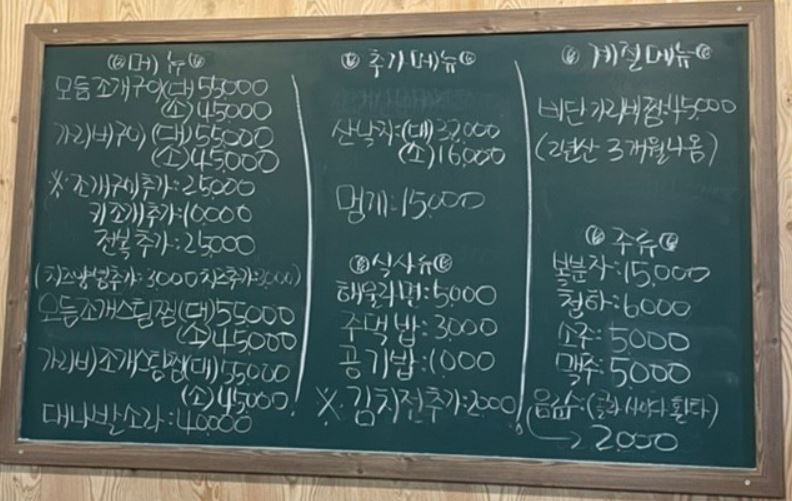 메뉴
모듬조개구이(대)55000
(소)45000
가리비구이(대)55000
(소)45000
※조개구이추가:25000
키조개추가:10000
전복추가:25000
(치즈양념추가:3000 치즈추가:3000)
모듬조개스팀찜(대)55000
(소)45000
가리비조개스팀찜(대)55000
(소)45000
대나반소라:40000
추가메뉴
산낙지:(대)32,000
(소)16,000
멍게:15000
식사류
해물라면:5,000
주먹밥:3,000
공기밥:1,000
※김치전추가:2000
계절메뉴
비단가리비찜:45,000
(2년산 3개월나옴)
주류
복분자:15,000
청하:6000
소주:5000
맥주:5000
음료수:(콜라 사이다 환타)
→2,000